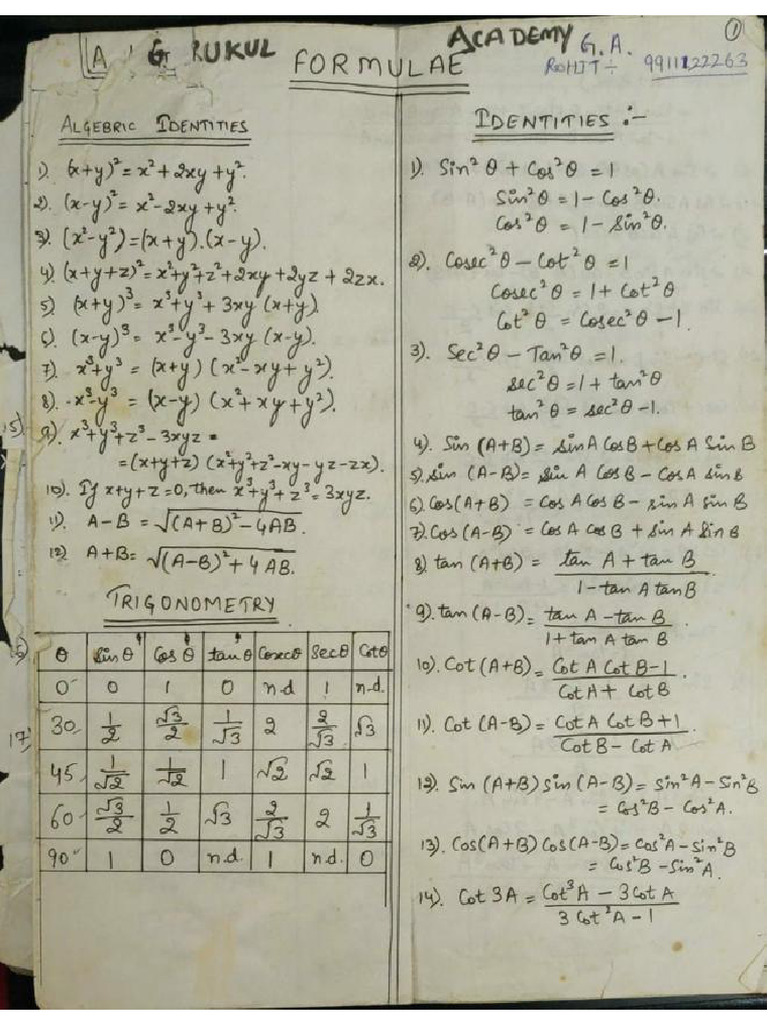 A G RUKUL ACADEMY G.A.
FORMULAE ROHIT ÷ 9911122263
1
ALGEBRIC IDENTITIES
1). (x+y)² = x² + 2xy + y².
2). (x-y)² = x² - 2xy + y².
3). (x²-y²) = (x+y).(x-y).
4) (x+y+z)² = x²+y²+z²+2xy+2yz+2zx.
5) (x+y)³ = x³+y³+3xy (x+y).
6). (x-y)³ = x³-y³-3xy (x-y).
7). x³+y³ = (x+y) (x²-xy+y²).
8). x³-y³ = (x-y) (x²+xy+y²).
9). x³+y³+z³-3xyz =
= (x+y+z) (x²+y²+z²-xy-yz-zx).
10). If x+y+z=0, then x³+y³+z³=3xyz.
11). A-B = √(A+B)²-4AB.
12) A+B = √(A-B)²+4AB.
TRIGONOMETRY
θ sinθ Cosθ tanθ Cosecθ Secθ Cotθ
0° 0 1 0 n.d 1 n.d.
30 1/2 √3/2 1/√3 2 2/√3 √3
45 1/√2 1/√2 1 √2 √2 1
60 √3/2 1/2 √3 2/√3 2 1/√3
90° 1 0 n.d. 1 n.d. 0
15)
17)
IDENTITIES :-
1). Sin²θ + Cos²θ = 1
Sin²θ = 1 - Cos²θ.
Cos²θ = 1 - Sin²θ.
2). Cosec²θ - Cot²θ = 1
Cosec²θ = 1 + Cot²θ
Cot²θ = Cosec²θ - 1.
3). Sec²θ - Tan²θ = 1.
sec²θ = 1 + tan²θ
tan²θ = sec²θ - 1.
4). Sin (A+B) = sinA CosB + CosA SinB
5). sin (A-B) = sin A CosB - CosA sinB
6). Cos(A+B) = CosA CosB - sin A sin B
7). Cos (A-B) = Cos A Cos B + sin A Sin B
8). tan (A+B) = tan A + tan B / 1 - tan A tan B
9). tan (A-B) = tan A - tan B / 1 + tan A tan B
10). Cot (A+B) = Cot A Cot B - 1 / Cot A + Cot B
11). Cot (A-B) = Cot A Cot B + 1 / Cot B - Cot A
12). Sin (A+B) sin (A-B) = Sin²A - Sin²B
= Cos²B - Cos²A.
13). Cos(A+B) Cos(A-B) = Cos²A - Sin²B
= Cos²B - Sin²A.
14). Cot 3A = Cot³A - 3Cot A / 3 Cot²A - 1